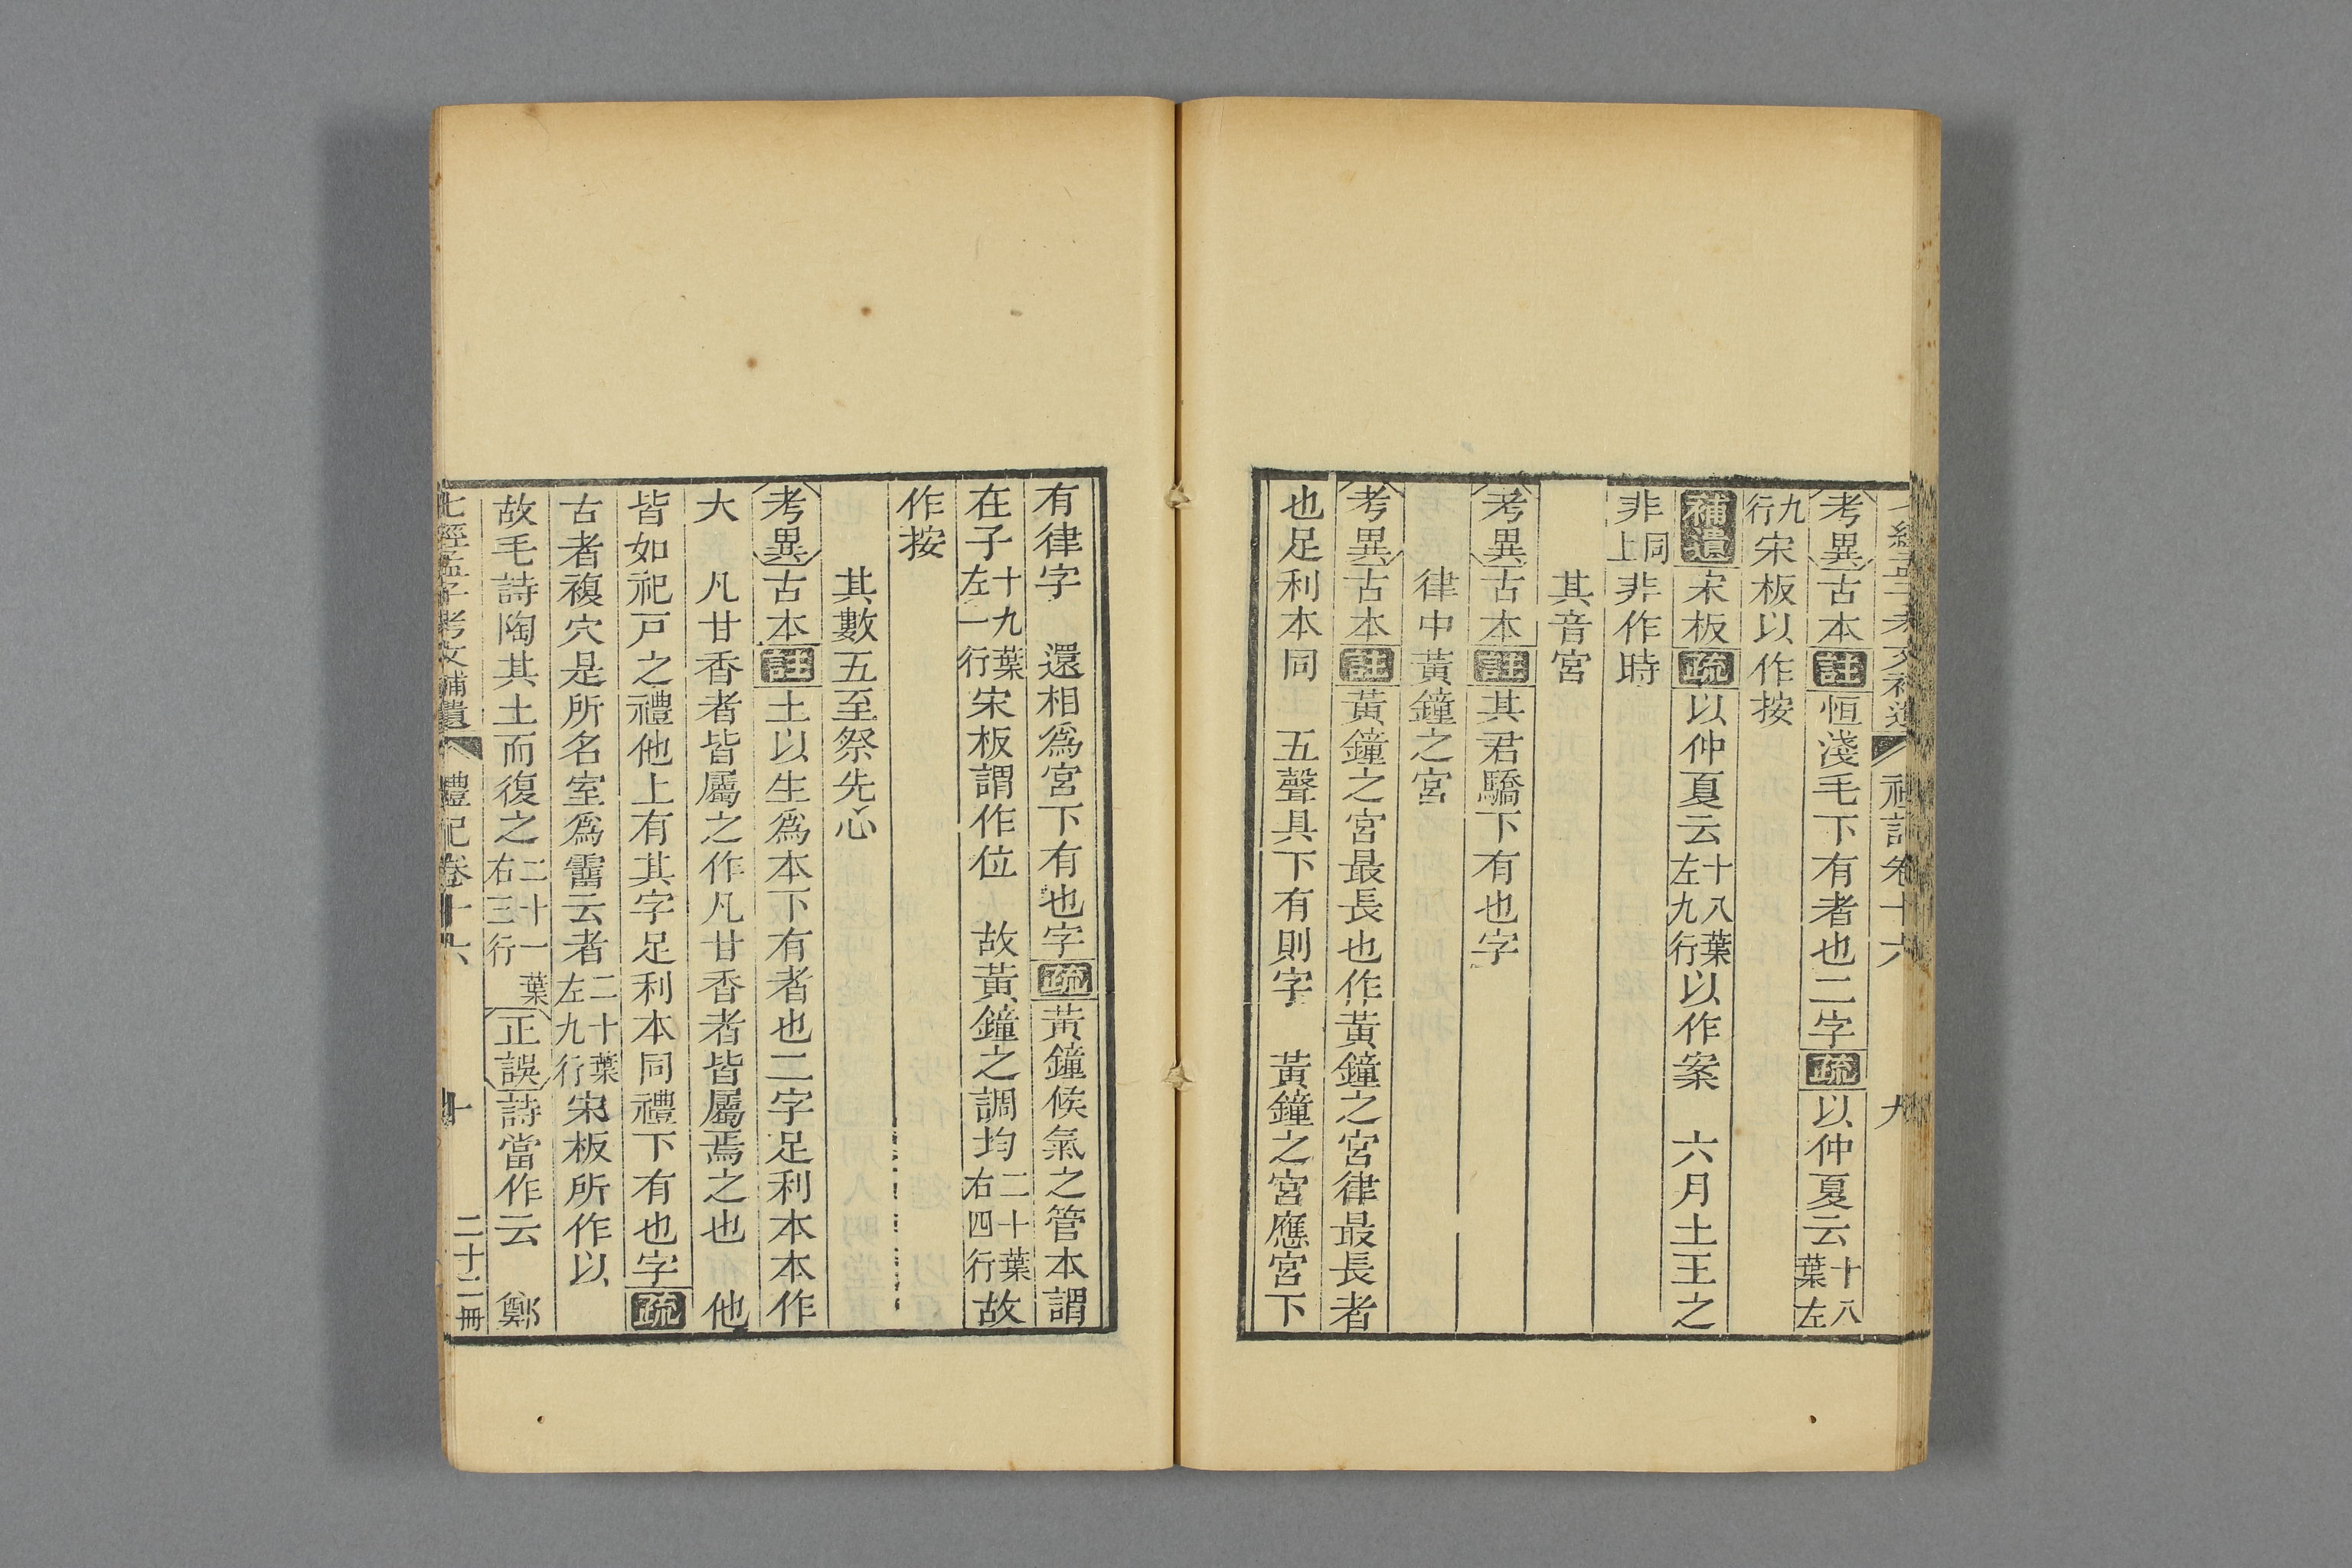 七經孟子考文補遺 禮記卷十六 九
考異古本註恒淺毛下有者也二字疏以仲夏云十八葉左
九行宋板以作按
補遺宋板疏以仲夏云十八葉左九行以作案 六月土王之
非同上非作時
其音宮
考異古本註其君驕下有也字
律中黃鐘之宮
考異古本註黃鐘之宮最長也作黃鐘之宮律最長者
也足利本同 五聲具下有則字 黃鐘之宮應宮下
有律字 還相爲宮下有也字疏黃鐘候氣之管本謂
在子十九葉左一行宋板謂作位 故黃鐘之調均二十葉右四行故
作按
其數五至祭先心
考異古本註土以生爲本下有者也二字足利本本作
大 凡甘香者皆屬之作凡甘香者皆屬焉之也 他
皆如祀戸之禮他上有其字足利本同禮下有也字疏
古者複穴是所名室爲霤云者二十葉左九行宋板所作以
故毛詩陶其土而復之二十一葉右三行正誤詩當作云 鄭
七經孟子考文補遺 禮記卷十六 十 二十二冊